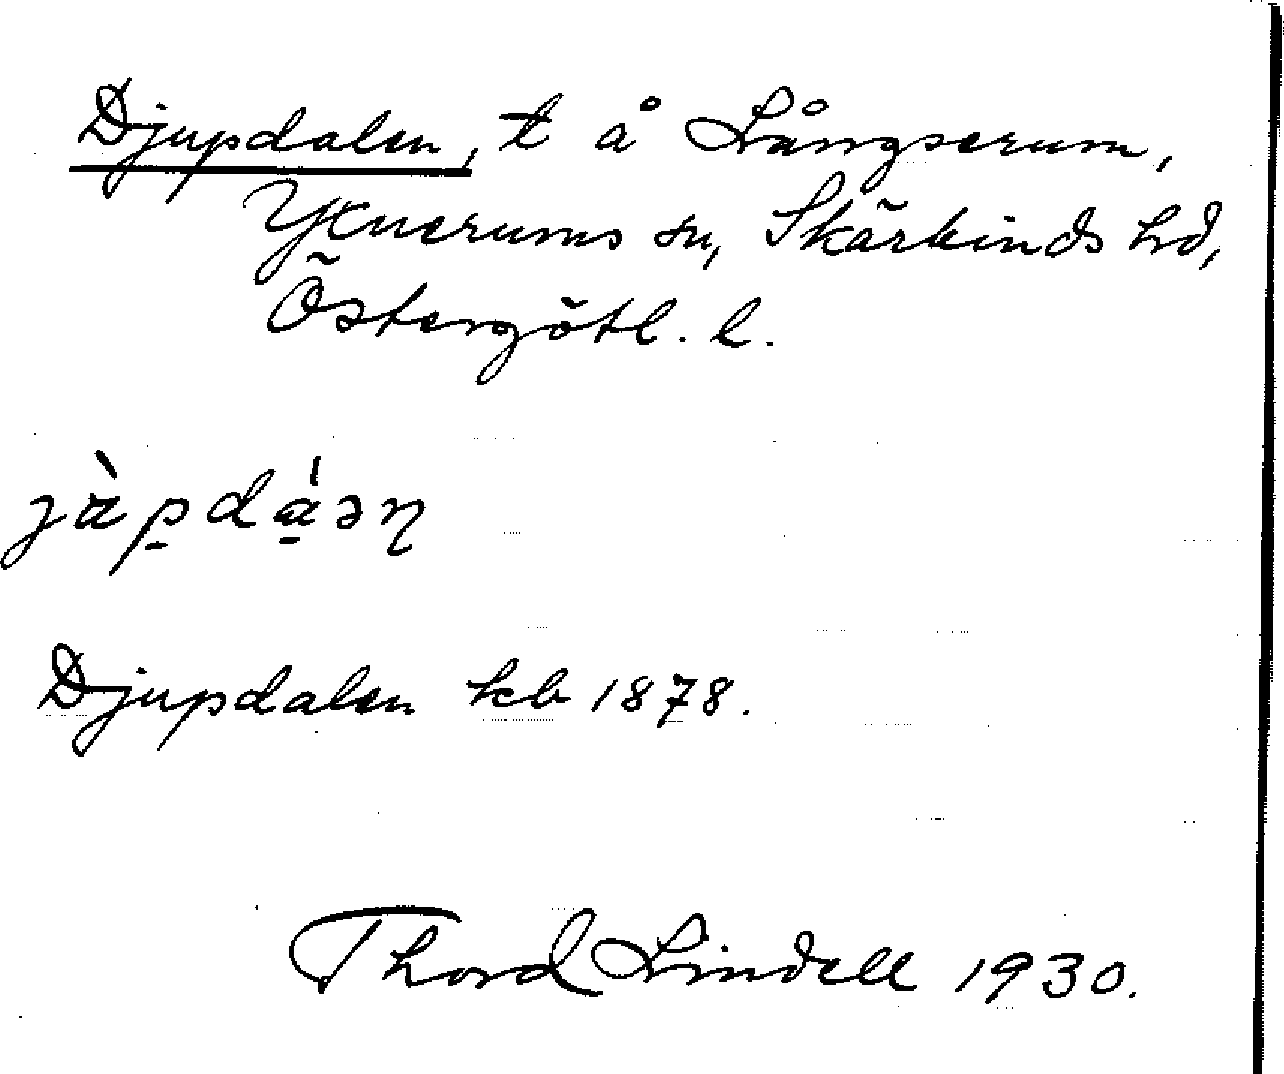 Djupdalen, t å Långserum,
Yxnerums sn, Skärkinds hd,
Östergötl. l.
Djupdalen kb 1878.
Thord Lindell 1930.